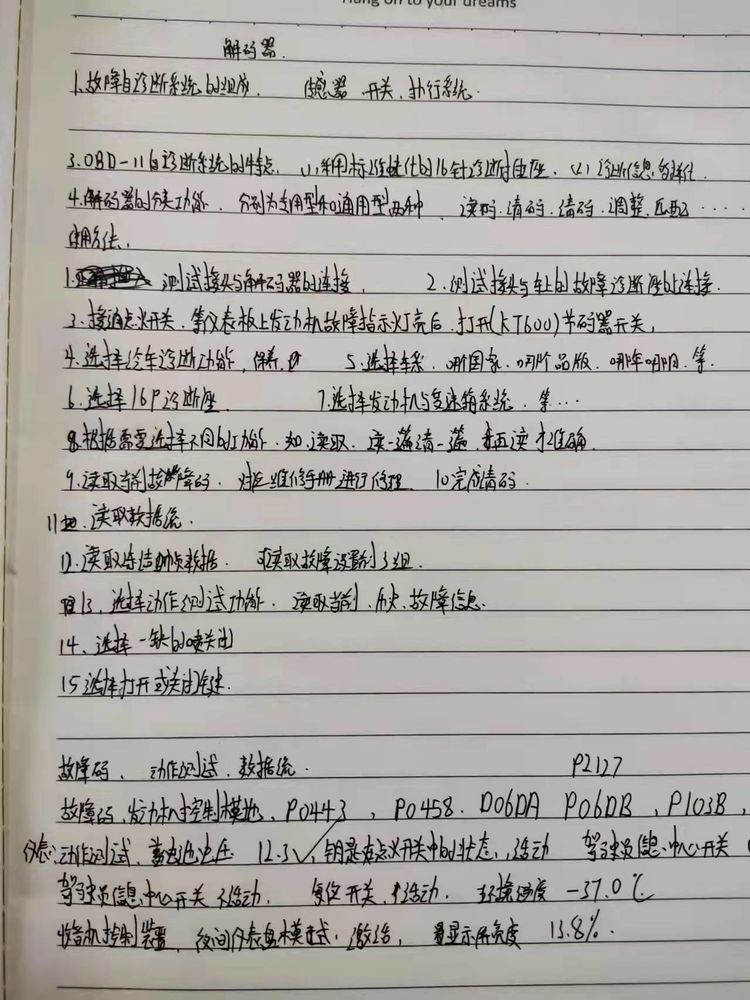 Hang on to your dreams
解码器.
1.故障自诊断系统的组成. 传感器 开关.执行系统.
3.OBD-11自诊断系统的特点. (1)采用标准化的16针诊断座. (2)诊断信息
4.解码器的分类功能. 分别为专用型和通用型两种. 读码.清码.清码.调整.匹配.....
使用方法.
1. 测试接头与解码器的连接. 2.测试接头与车上的故障诊断座的连接.
3.接通点火开关.等仪表板上发动机故障指示灯亮后.打开(KT600)解码器开关.
4.选择汽车诊断功能.保养. 5.选择车系.哪个国家.哪个品版.哪年哪月.等.
6.选择16P诊断座. 7.选择发动机与变速箱系统.等...
8.根据需要选择不同的功能.如.读取.读一遍清一遍.再读才准确.
9.读取当前故障码.对应维修手册进行修理. 10完成清码.
11 读取数据流.
12.读取冻结帧数据. 可读取故障设置前3组.
13.选择动作测试功能.读取当前.历史.故障信息.
14、选择一缸的喷关闭
15选择打开或关闭
故障码、动作测试.数据流. P2127
故障码.发动机控制模块、P0443、P0458.D06DA P06DB、P103B、
仪表:动作测试.蓄电池电压 12.3V.钥匙在点火开关中的状态.活动 驾驶员信息中心开关
驾驶员信息中心开关 不活动. 复位开关.不活动. 环境温度 -37.0℃
收音机控制装置.夜间仪表盘模式.激活. 显示屏亮度 13.8%.